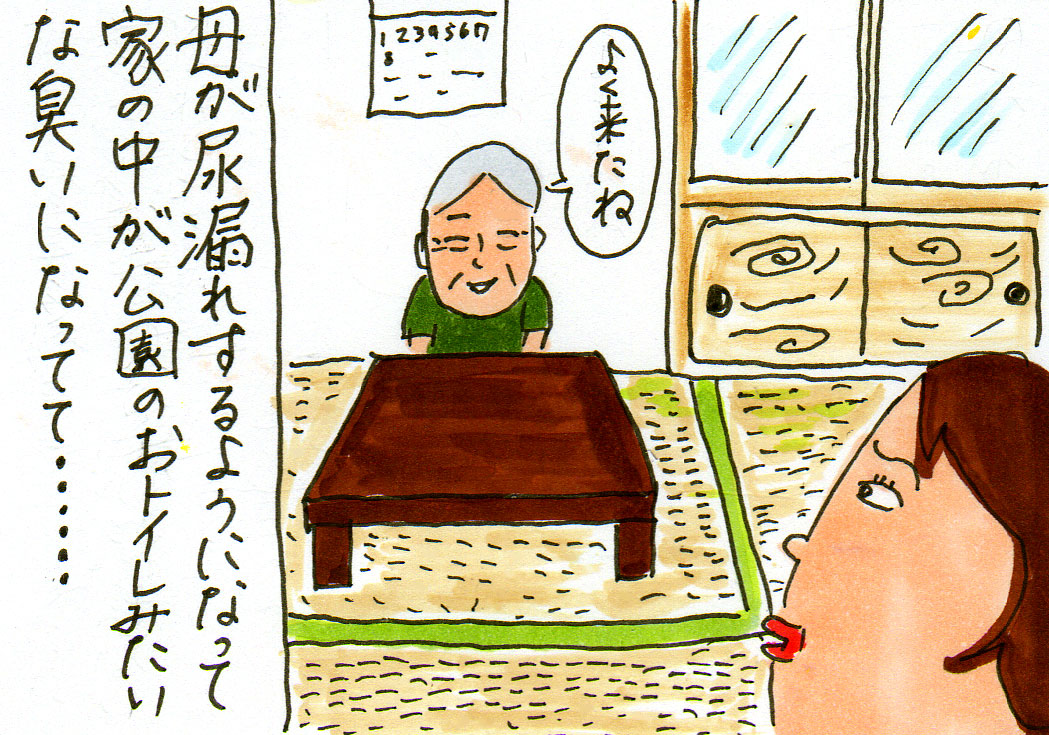 母が尿漏れするようになって
家の中が公園のおトイレみたい
な臭いになってて・・・・・・
よく来たね
1234567
8